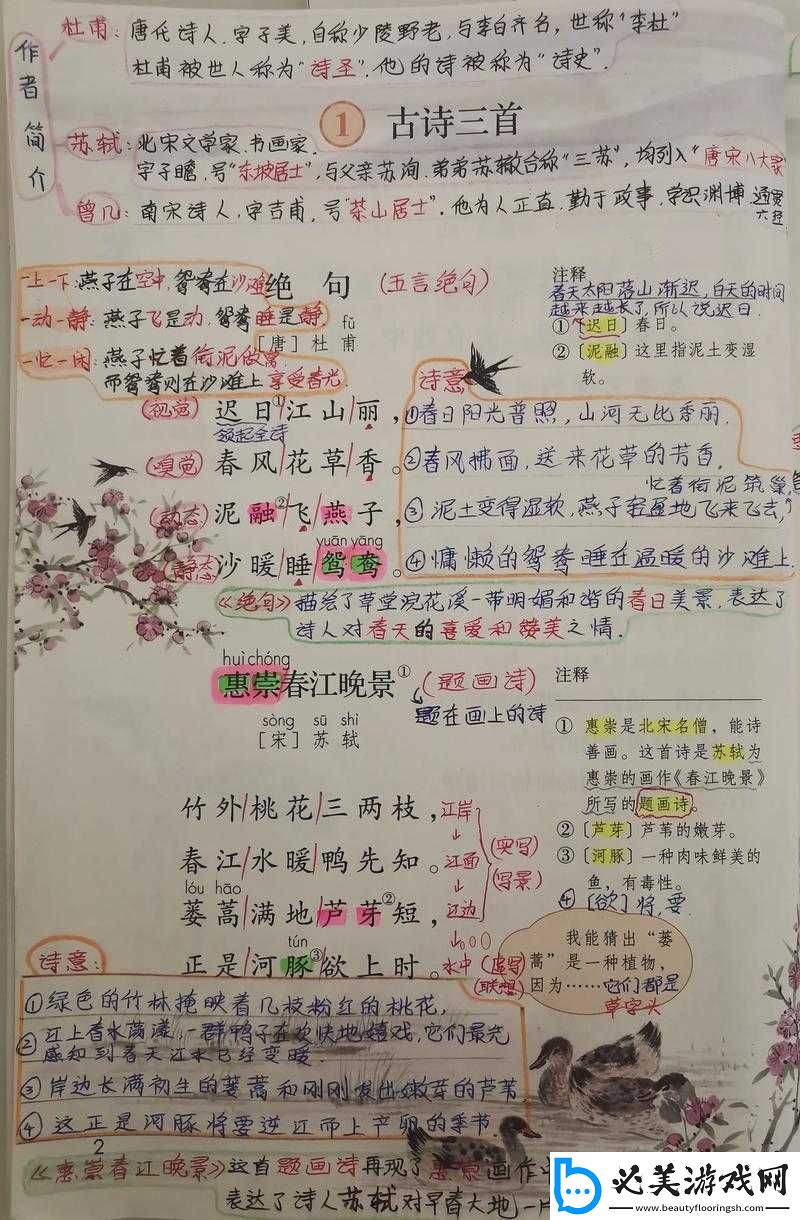 作者简介
杜甫：唐代诗人，字子美，自称少陵野老，与李白齐名，世称“李杜”
杜甫被世人称为“诗圣”，他的诗被称为“诗史”．
1 古诗三首
苏轼：北宋文学家．书画家．
字子瞻．号“东坡居士”，与父亲苏洵．弟弟苏辙合称“三苏”，均列入“唐宋八大家”
曾几：南宋诗人，字吉甫，号“茶山居士”．他为人正直，勤于政事，学识渊博
通贯六经
一上一下：燕子在空中，鸳鸯在沙滩
一动一静：燕子飞是动，鸳鸯睡是静
一忙一闲：燕子忙着衔泥做窝
而鸳鸯则在沙滩上享受春光．
绝句（五言绝句）
fǔ
［唐］杜 甫
注释
春天太阳落山渐迟，白天的时间
越来越长了，所以说迟日．
①〔迟日〕春日。
②〔泥融〕这里指泥土变湿
软。
诗意
（视觉）迟日①/江山/丽，
领起全诗
①春日阳光普照，山河无比秀丽．
（嗅觉）春风/花草/香。
②春风拂面，送来花草的芳香．
忙着衔泥筑巢，
（动态）泥融②/飞/燕子，
③泥土变得湿软，燕子轻盈地飞来飞去，
yuān yāng
（静态）沙暖/睡/鸳鸯。
④慵懒的鸳鸯睡在温暖的沙滩上．
《绝句》描绘了草堂浣花溪一带明媚和谐的春日美景，表达了
诗人对春天的喜爱和赞美之情．
huì chóng
惠崇春江晚景①（题画诗）
题在画上的诗
sòng sū shì
［宋］苏 轼
注释
① 惠崇是北宋名僧，能诗
善画。这首诗是苏轼为
惠崇的画作《春江晚景》
所写的题画诗。
②〔芦芽〕芦苇的嫩芽。
③〔河豚〕一种肉味鲜美的
鱼，有毒性。
④〔欲〕将，要．
竹外/桃花/三两枝，江岸
春江/水暖/鸭先知。江面
（实写）
（写景）
lóu hāo
蒌蒿/满地/芦芽②短，江边
tún
正是/河豚③/欲上时。水中（虚写）
（联想）
我能猜出“蒌
蒿”是一种植物，
因为……它们都是
草字头
诗意：
①绿色的竹林掩映着几枝粉红的桃花，
②江上春水荡漾，一群鸭子在欢快地嬉戏，它们最先
感知到春天江水已经变暖．
③岸边长满初生的蒌蒿和刚刚发出嫩芽的芦苇．
④这正是河豚将要逆江而上产卵的季节．
2
《惠崇春江晚景》这首题画诗再现了惠崇画作中
表达了诗人苏轼对早春大地一片
必美游戏网
www.beautyflooringsh.com